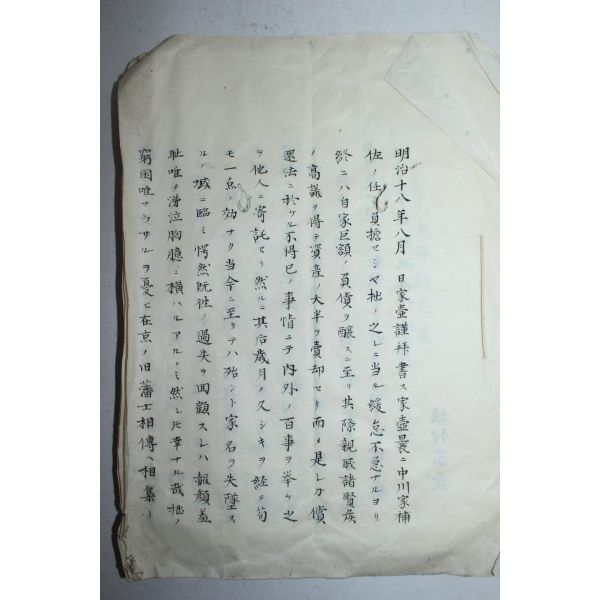 明治十八年八月 日家壷謹拜書ス家壷曩ニ中川家補
佐ノ任ヲ負擔セシマ拙ノ之レニ当ル緩怠不急ナルヨリ
終ニハ自家巨額ノ負債ヲ釀スニ至リ其際親戚諸賢侯
ノ高議ヲ得テ資産ノ大半ヲ賣却セリ而メ是レカ償
還法ニ於ケル不得已ノ事情ニテ内外ノ百事ヲ挙ケ之
ヲ他人ニ寄託セリ然ルニ其后歳月ノ久シキヲ経テ苟
モ一点ノ効ナク当今ニ至リテハ殆ント家名ヲ失墜ス
ルノ域ニ臨ミ愕然既徃ノ過失ヲ回顧スレハ赧顔羞
耻唯タ滂泣胸臆ニ横ハルアルノミ然レ𪜈幸ナル哉拙ノ
窮困唯ナラサルヲ憂ヒ在京ノ旧藩士相傳ヘ相集リ